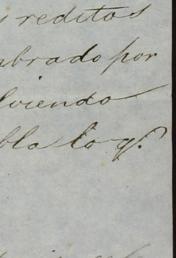 s reditos
mbrado por
lviendo
bla lo q.